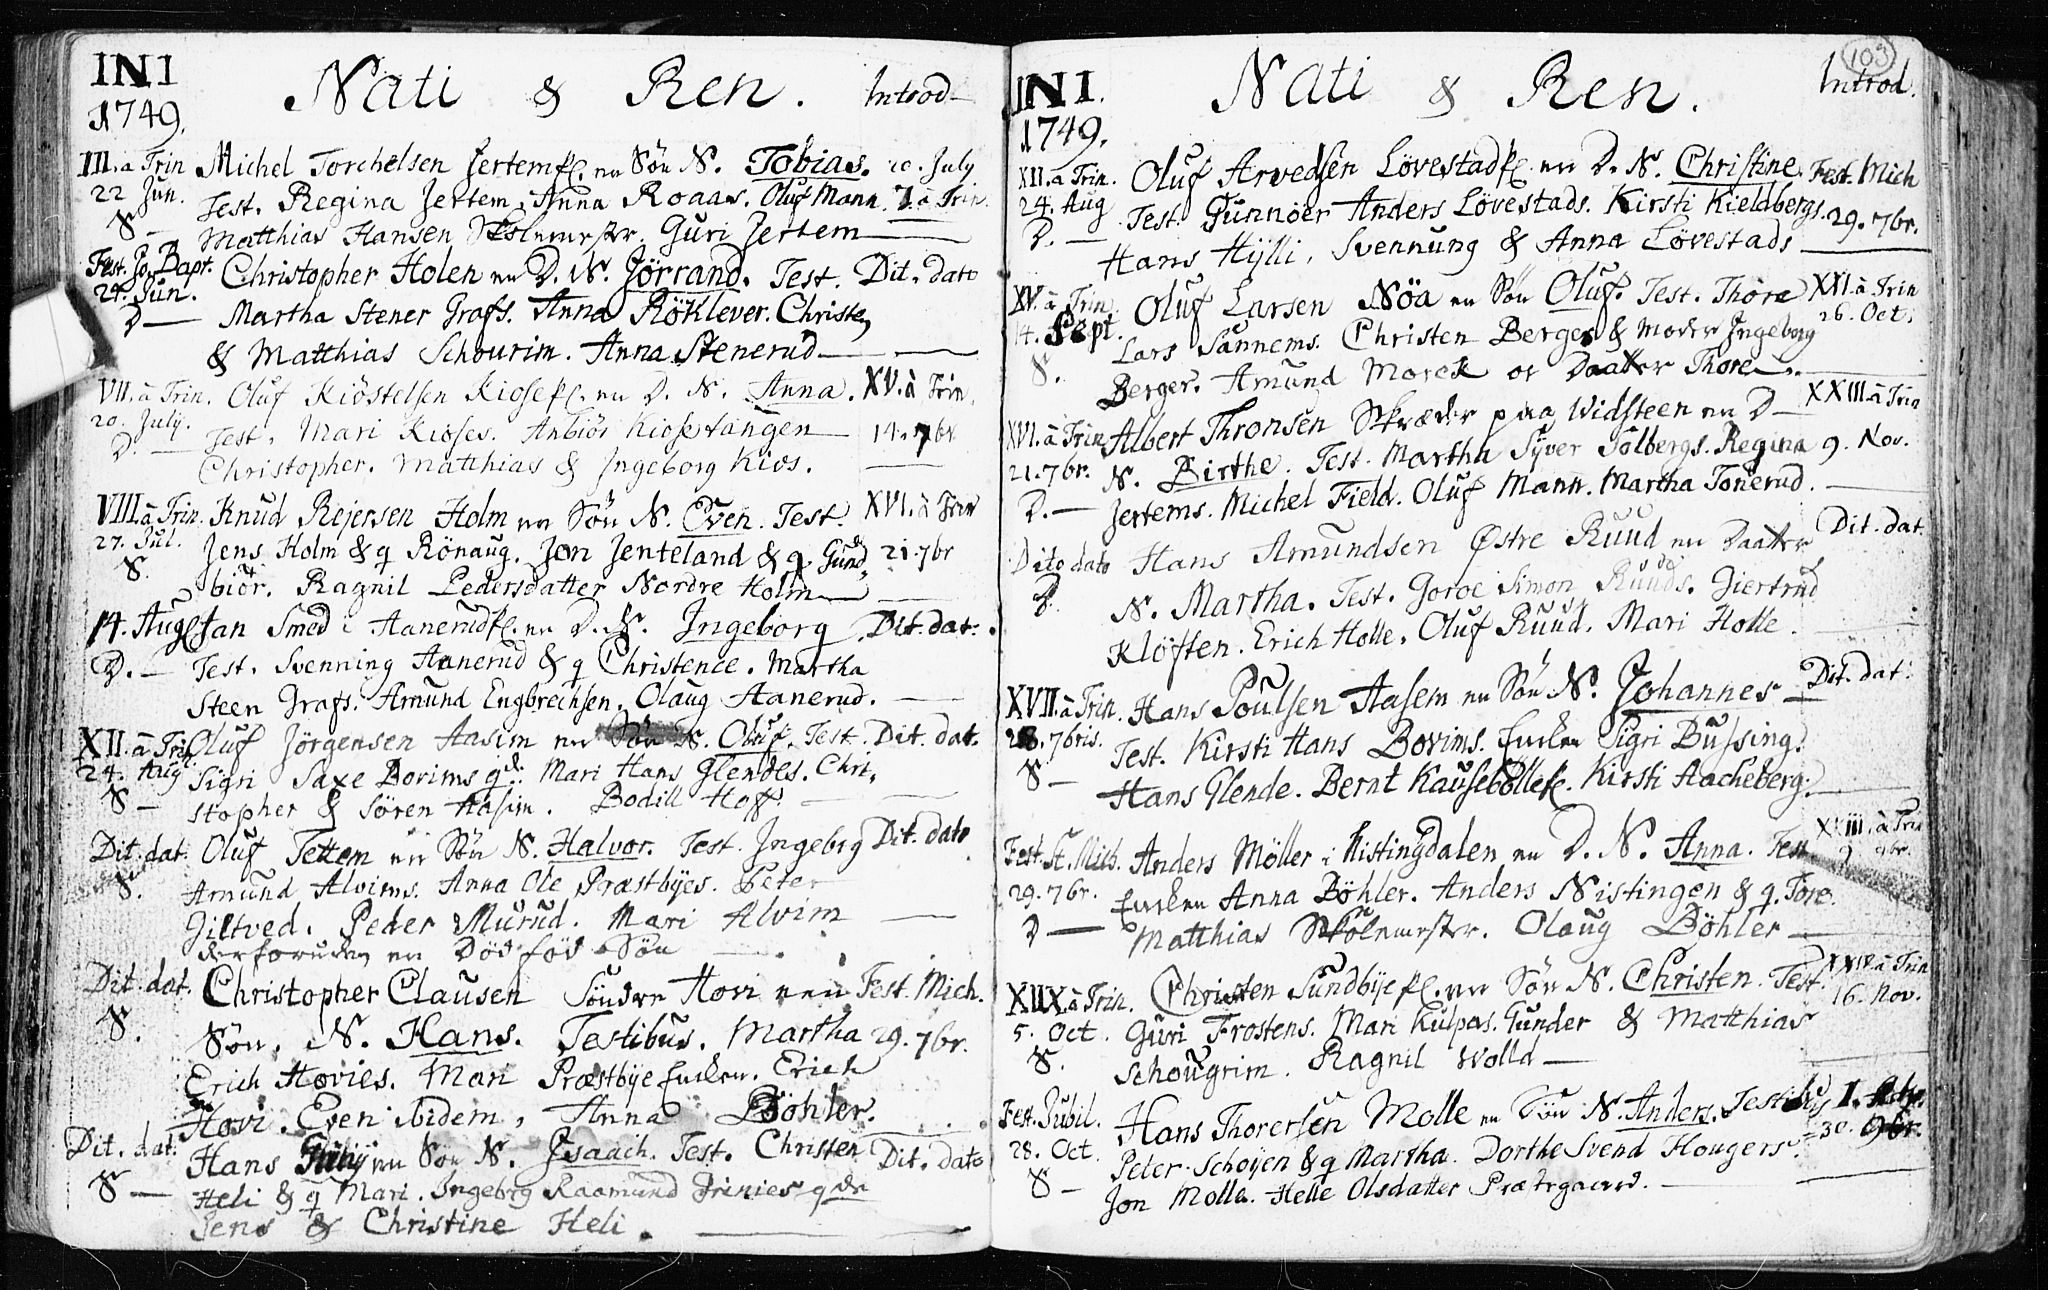 INI
1749.
Nati & Ren. Introd
III. a Trin Michel Torchelsen Jertem en Sön N. Tobias. 20. July
22 Jun. Test. Regina Jertem, Anna Roaas. Oluf Mann 7. à Trin.
S - Matthias Hansen Skolemester. Guri Jertem
Fest. Jo. Bapt. Christopher Holen en D. N. Jörrand. Test. Dit. dato
24. Jun.
D — Martha Stener Grafs. Anna Röklever. Christen
& Matthias Schourim. Anna Stenerud
VII. à Trin. Oluf Kiöstelsen Kiose en D. N. Anna. XV. à Trin.
20. July.
D. — Test. Mari Kioses. Anbiör Kiosetangen 14. 7br
Christopher. Matthias & Ingeborg Kios.
VIII. à Trin. Knud Rejersen Holm en Sön N. Even. Test. XVI. à Trin
27. Jul. Jens Holm & q Rönaug. Jon Jenteland & q Gund 21. 7br
S. biör. Ragnil Pedersdatter Nordre Holm
14. Aug. Jan Smed i Aanerud en D. N. Ingeborg Dit. dat.
D. — Test. Svenning Aanerud & q Christence. Martha
Steen Grafs. Amund Engbrechsen. Olaug Aanerud.
XII. à Trin. Oluf Jörgensen Aasim en Sön N. Oluf. Test. Dit. dat.
24. Aug Sigri Saxe Borims Mari Hans Glendes. Chri
S - stopher & Sören Aasim. Bodill Hoff.
Dit. dat. Oluf Tettem en Sön N. Halvor. Test. Ingebrg Dit. dato
S. Amund Alvims. Anna Ole Præstbyes. Peter
Jiltved. Peder Murud. Mari Alvim
derforuden en Död föd Sön
Dit. dat. Christopher Clausen Söndre Hovi een Fest. Mich.
S. Sön. N. Hans. Testibus. Martha 29. 7br.
Erich Hovies. Mari Præstbye Enken. Erich
Hovi. Even ibidem, Anna Böhler.
Dit. dat. Hans en Sön N. Isaach. Test. Christen Dit. dato
S — Heli & q Mari. Ingebrg Raamund
Jens & Christine Heli.
103
INI.
1749.
Nati & Ren. Introd.
XII. à Trin. Oluf Arvedsen Lövestad en D. N. Christine. Fest. Mich
24. Aug Test. Gunnoer Anders Lövestads. Kirsti Kieldbergs. 29. 7br.
D. — Hans Hylli, Svennung & Anna Lövestads
XV. à Trin Oluf Larsen Nöa en Sön Oluf. Test. Thore XXI. à Trin
14. Sept. Lars Sannems. Christen Berger & Moder Ingeborg 26. Oct.
S. Berger. Amund Morck or Daatter Thore.
XVI. à Trin Albert Thronsen Skræder paa Widsteen en D — XXIII. à Trin
21. 7br. N. Birthe. Test. Martha Syver Solbergs. Regina 9. Nov.
D. — Jertems. Michel Field. Oluf Mann. Martha Tönerud.
Dito dato Hans Amundsen Østre Ruud en Daatter Dit. dat.
D. N. Martha. Test. Goroe Simon Ruuds. Giertrud
Klöften. Erich Holle. Oluf Ruud. Mari Holle.
XVII. à Trin. Hans Poulsen Aasem en Sön N. Johannes Dit. dat.
28. 7bris. Test. Kirsti Hans Borims. Enken Sigri Bussing.
S — Hans Glende. Bernt Kausebölle. Kirsti Aacheberg.
Fest. St. Mich. Anders Möller i Nistingdalen en D. N. Anna. Test XXIII. à Trin
29. 7br. Enken Anna Böhler. Anders Nistingen & q. Tore. 9 9br.
D — Matthias Skolemester. Olaug Böhler
XIIX. à Trin. Christen Sundbye en Sön N. Christen. Test. XXIV. à Trin
5. Oct. Guri Frostens. Mari Kulpes. Gunder & Matthias 16. Nov.
S. Schougrim. Ragnil Wolld
Fest. Jubil. Hans Thorersen Molle en Sön N. Anders. Testibus I. Adv.
28. Oct. Peter Schoyen & q Martha. Dorthe Svend Hougers. 30. 9br.
S — Jon Molle. Helle Olsdatter Præstegaard.